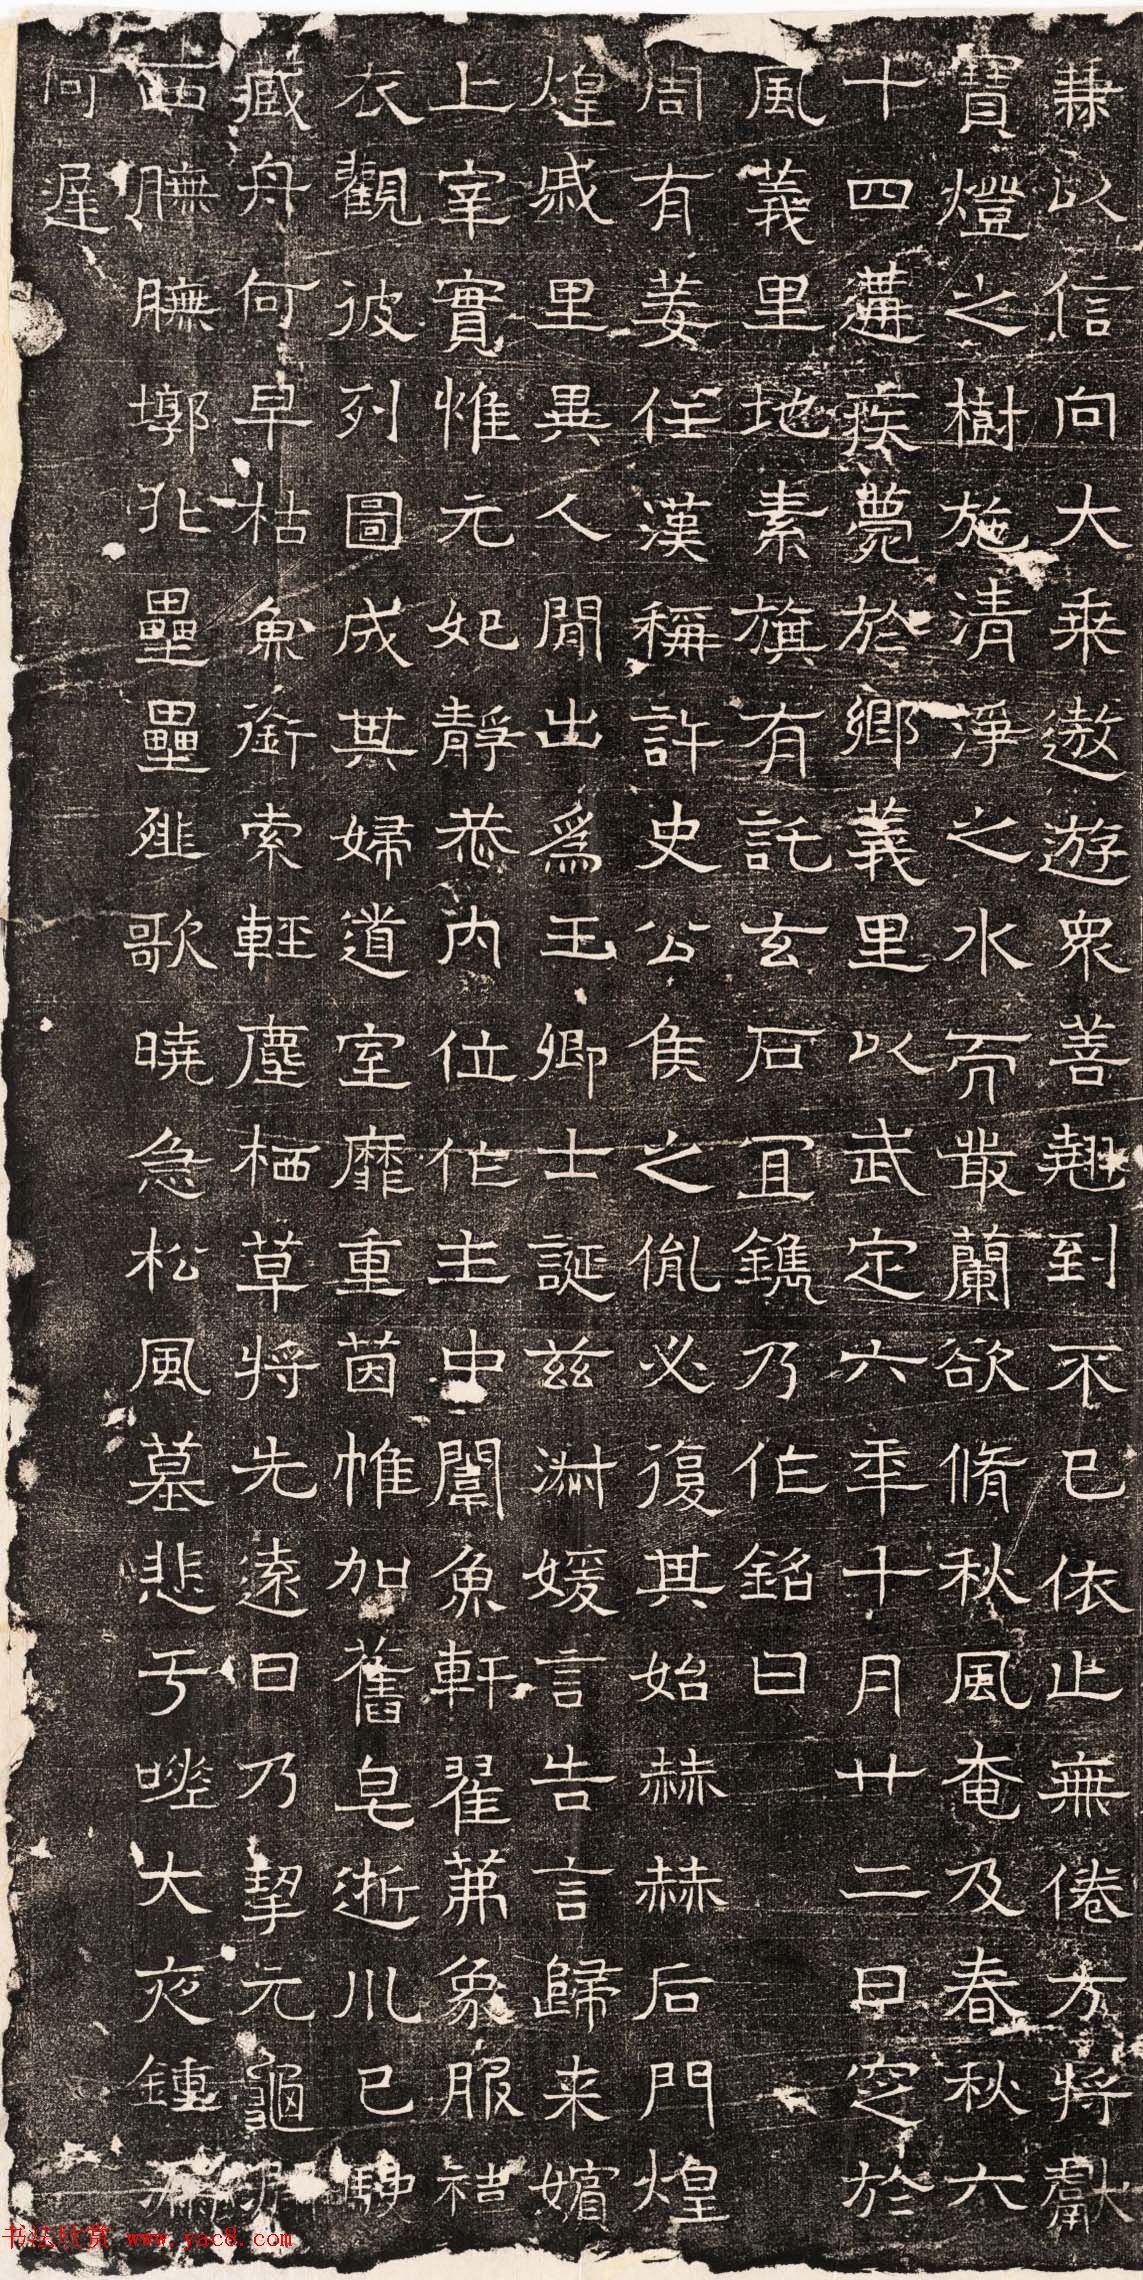 兼以信向大乘遨遊衆善翹到不已依止無倦方將獻
寶燈之樹施清淨之水而叢蘭欲脩秋風奄及春秋六
十四遘疾薨於鄉義里以武定六年十月廿二日窆於
風義里地素旗有託玄石宜鐫乃作銘曰
周有姜任漢稱許史公侯之胤必復其始赫赫后門煌
煌戚里異人間出爲王卿士誕茲淑媛言告言歸来嬪
上宰實惟元妃靜恭内位作主中闈魚軒翟茀象服袿
衣觀彼列圖成其婦道室靡重茵帷加舊皂逝川已駛
藏舟何早枯魚銜索輕塵栖草將先遠日乃挈元龜
西膴膴墎北壘壘薤歌曉急松風墓悲于嗟大夜鍾漏
何遲
书法欣赏 www.yac8.com